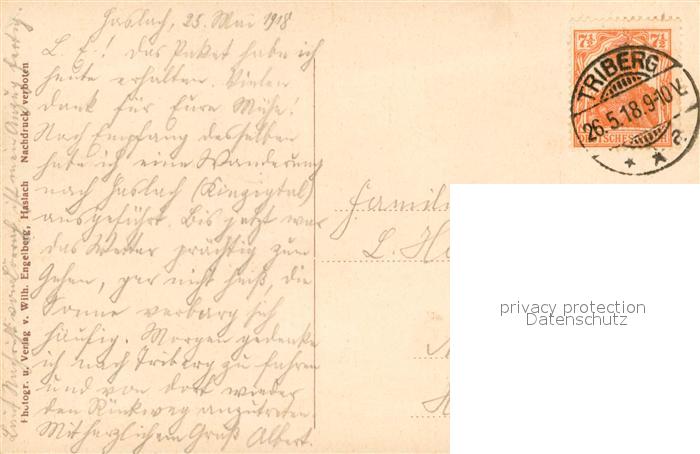 Haslach, 25. Mai 1918
L. E.! Das Paket habe ich
heute erhalten. Vielen
Dank für Eure Mühe!
Nach Empfang desselben
habe ich eine Wanderung
nach Haslach (Kinzigtal)
ausgeführt. Bis jetzt war
das Wetter prächtig zum
Gehen, gar nicht heiß, die
Sonne verbarg sich
häufig. Morgen gedenke
ich nach Triberg zu fahren
und von dort wieder
den Rückweg anzutreten.
Mit herzlichem Gruß Albert.
Nachricht ist mein Anzug fertig.
Photogr. u. Verlag v. Wilh. Engelberg, Haslach Nachdruck verboten
7½ 7½
DEUTSCHES
TRIBERG
26.5.18.9-10V.
* * 2.
Famili
L. H
privacy protection
Datenschutz